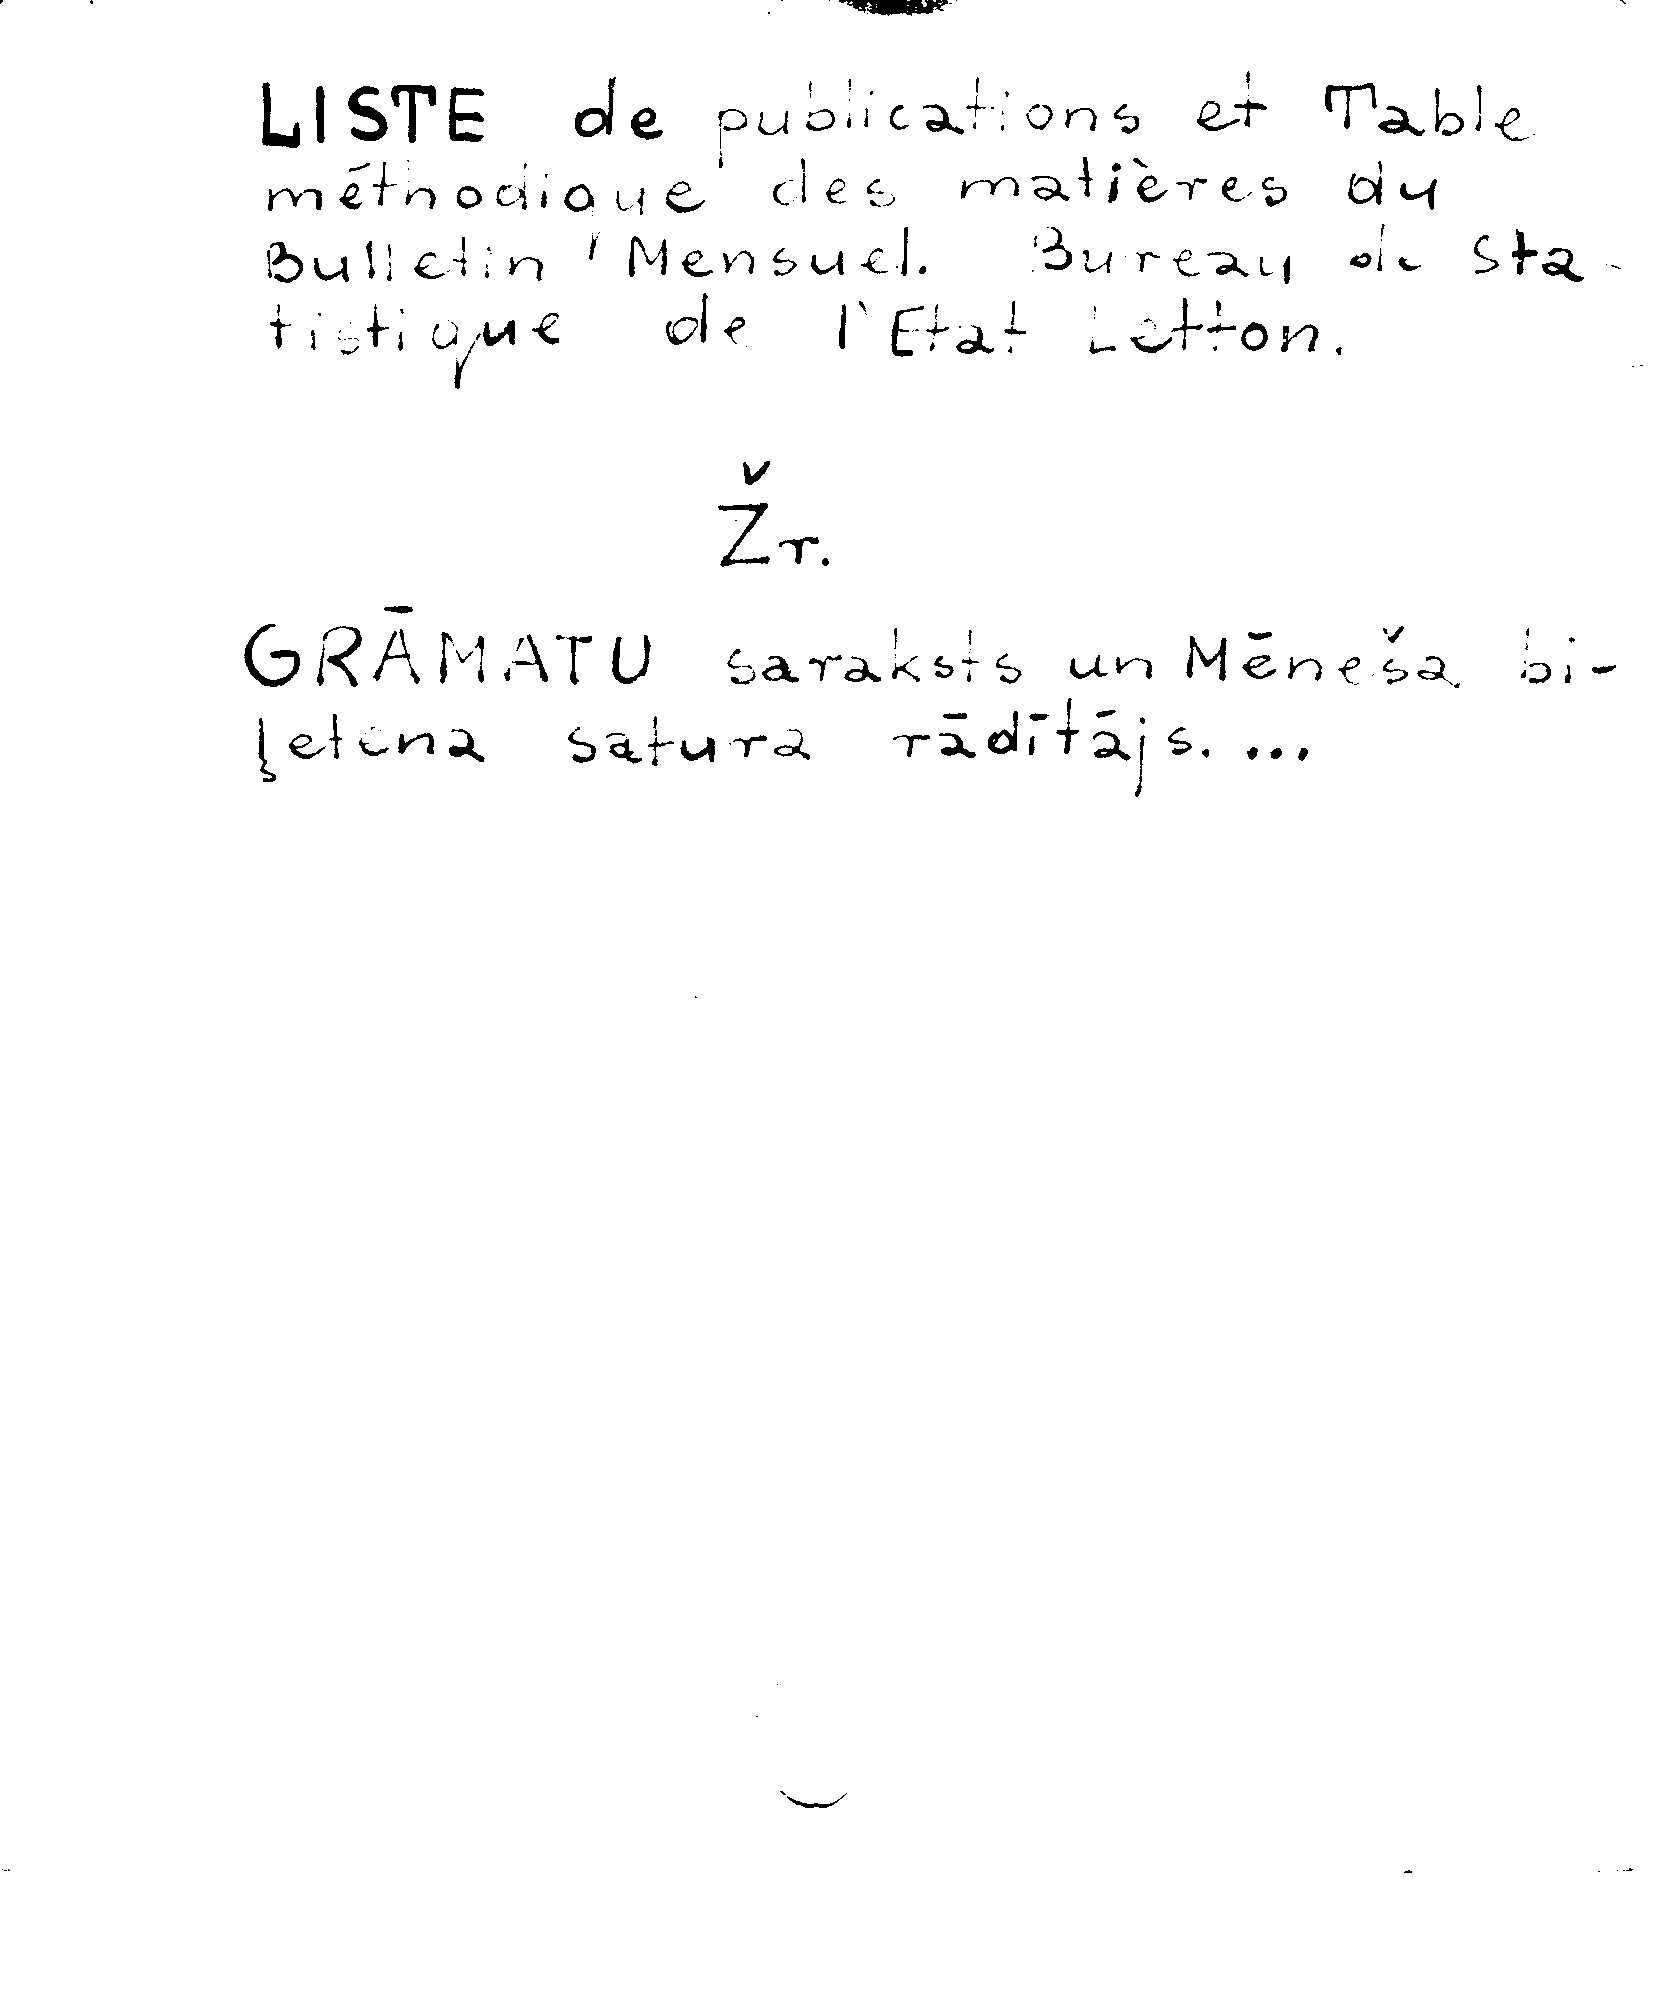 LISTE de publications et Table
méthodique des matières du
Bulletin Mensuel. Bureau de Sta-
tistique de l'Etat Letton.
Žr.
GRĀMATU saraksts un Mēneša bi-
ļetena satura rādītājs. ...